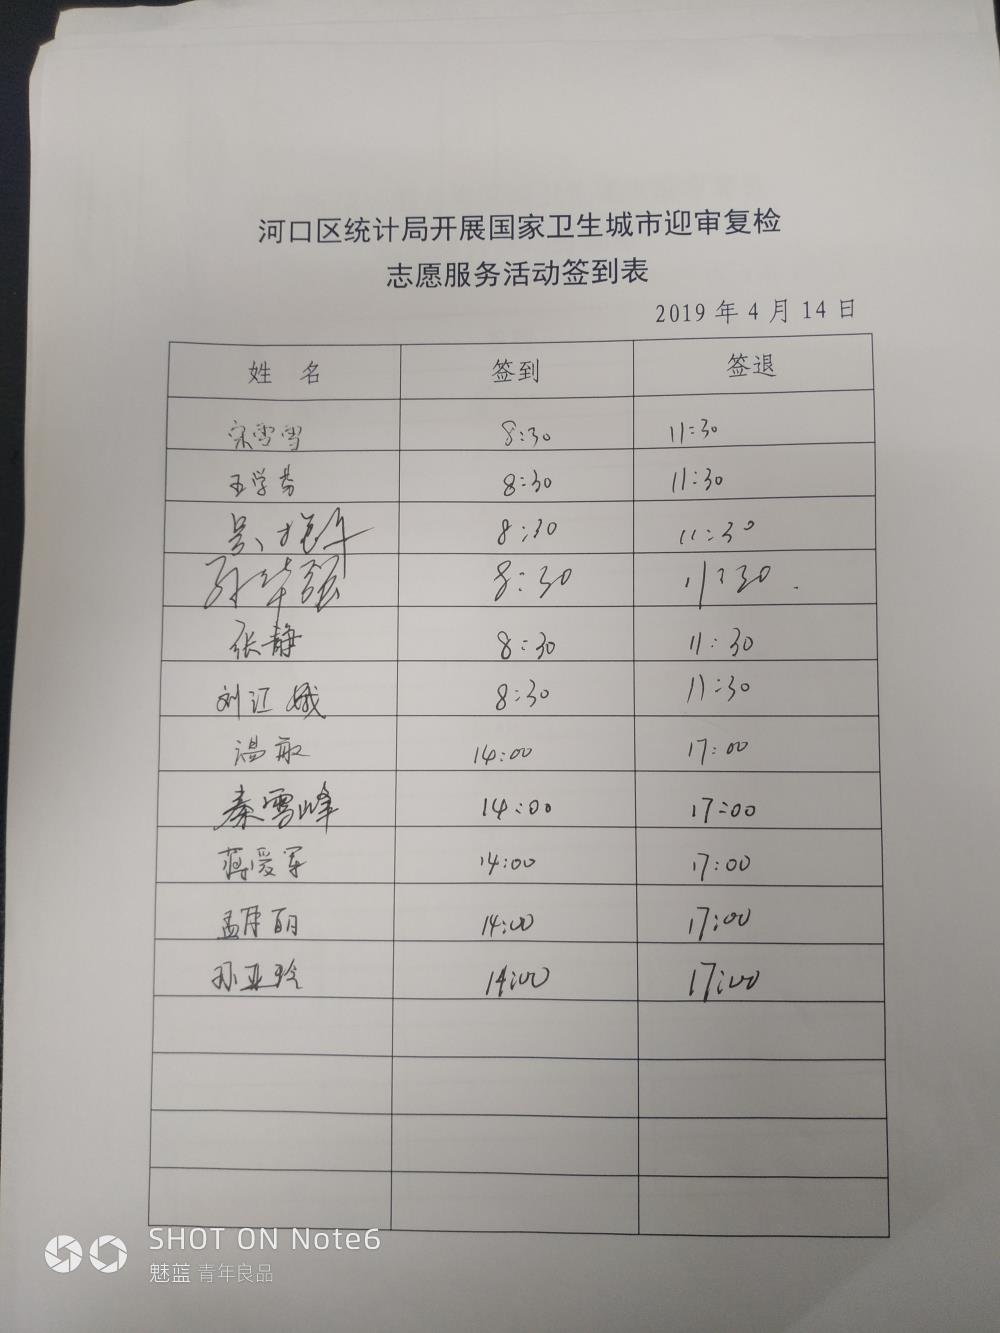 河口区统计局开展国家卫生城市迎审复检
志愿服务活动签到表
2019年4月14日
姓 名 签到 签退
宋雪雪 8:30 11:30
王学芳 8:30 11:30
8:30 11:30
孙华强 8:30 11:30
张静 8:30 11:30
刘江娥 8:30 11:30
温敏 14:00 17:00
秦雪峰 14:00 17:00
蒋爱军 14:00 17:00
孟月丽 14:00 17:00
孙亚玲 14:00 17:00
SHOT ON Note6
魅蓝 青年良品